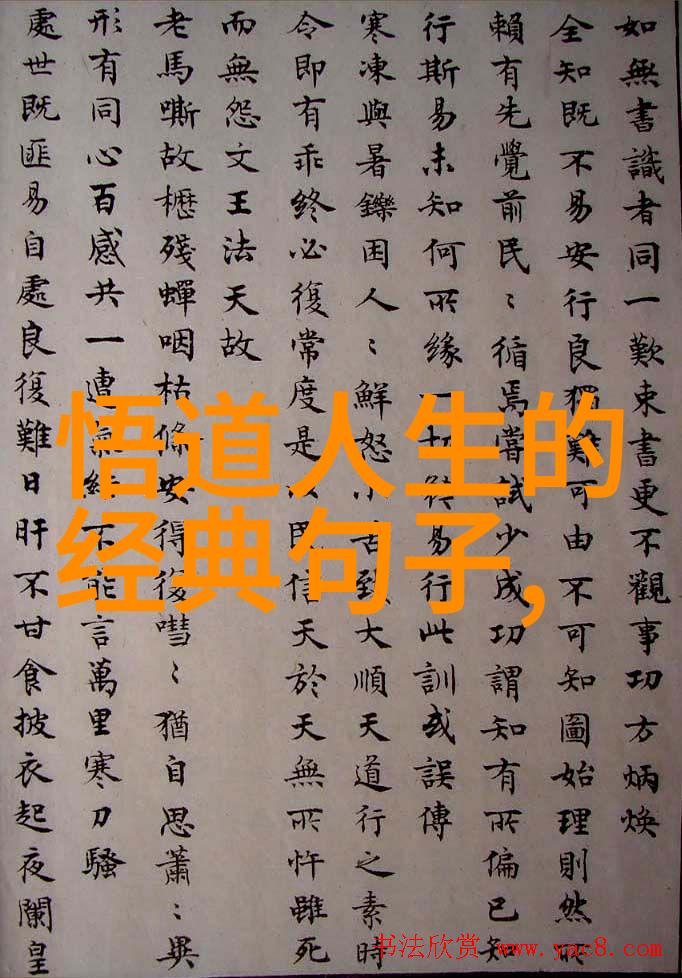 如無書識者同一歎束書更不觀事功方炳煥
全知既不易安行良獨難可由不可知圖始理則然所
賴有先覺前民〻循焉嘗試少成功謂知有所偏已知
行斯易未知何所緣一切從易行此訓或誤傳
寒凍與暑鑠困人〻鮮怒小舌致大順天道行之素時
令即有乖終必復常度是以民信天於天無所忤雖死
而無怨文王法天故
老馬嘶故櫪殘蟬咽枯條安得復嘒〻猶自思蕭〻異
形有同心百感共一遭氣結不能言萬里寒刀騷
處世既匪易自處良復難日旰不甘食披衣起夜闌皇
悟道人生的
经典句子,
书法欣赏 www.yac8.com